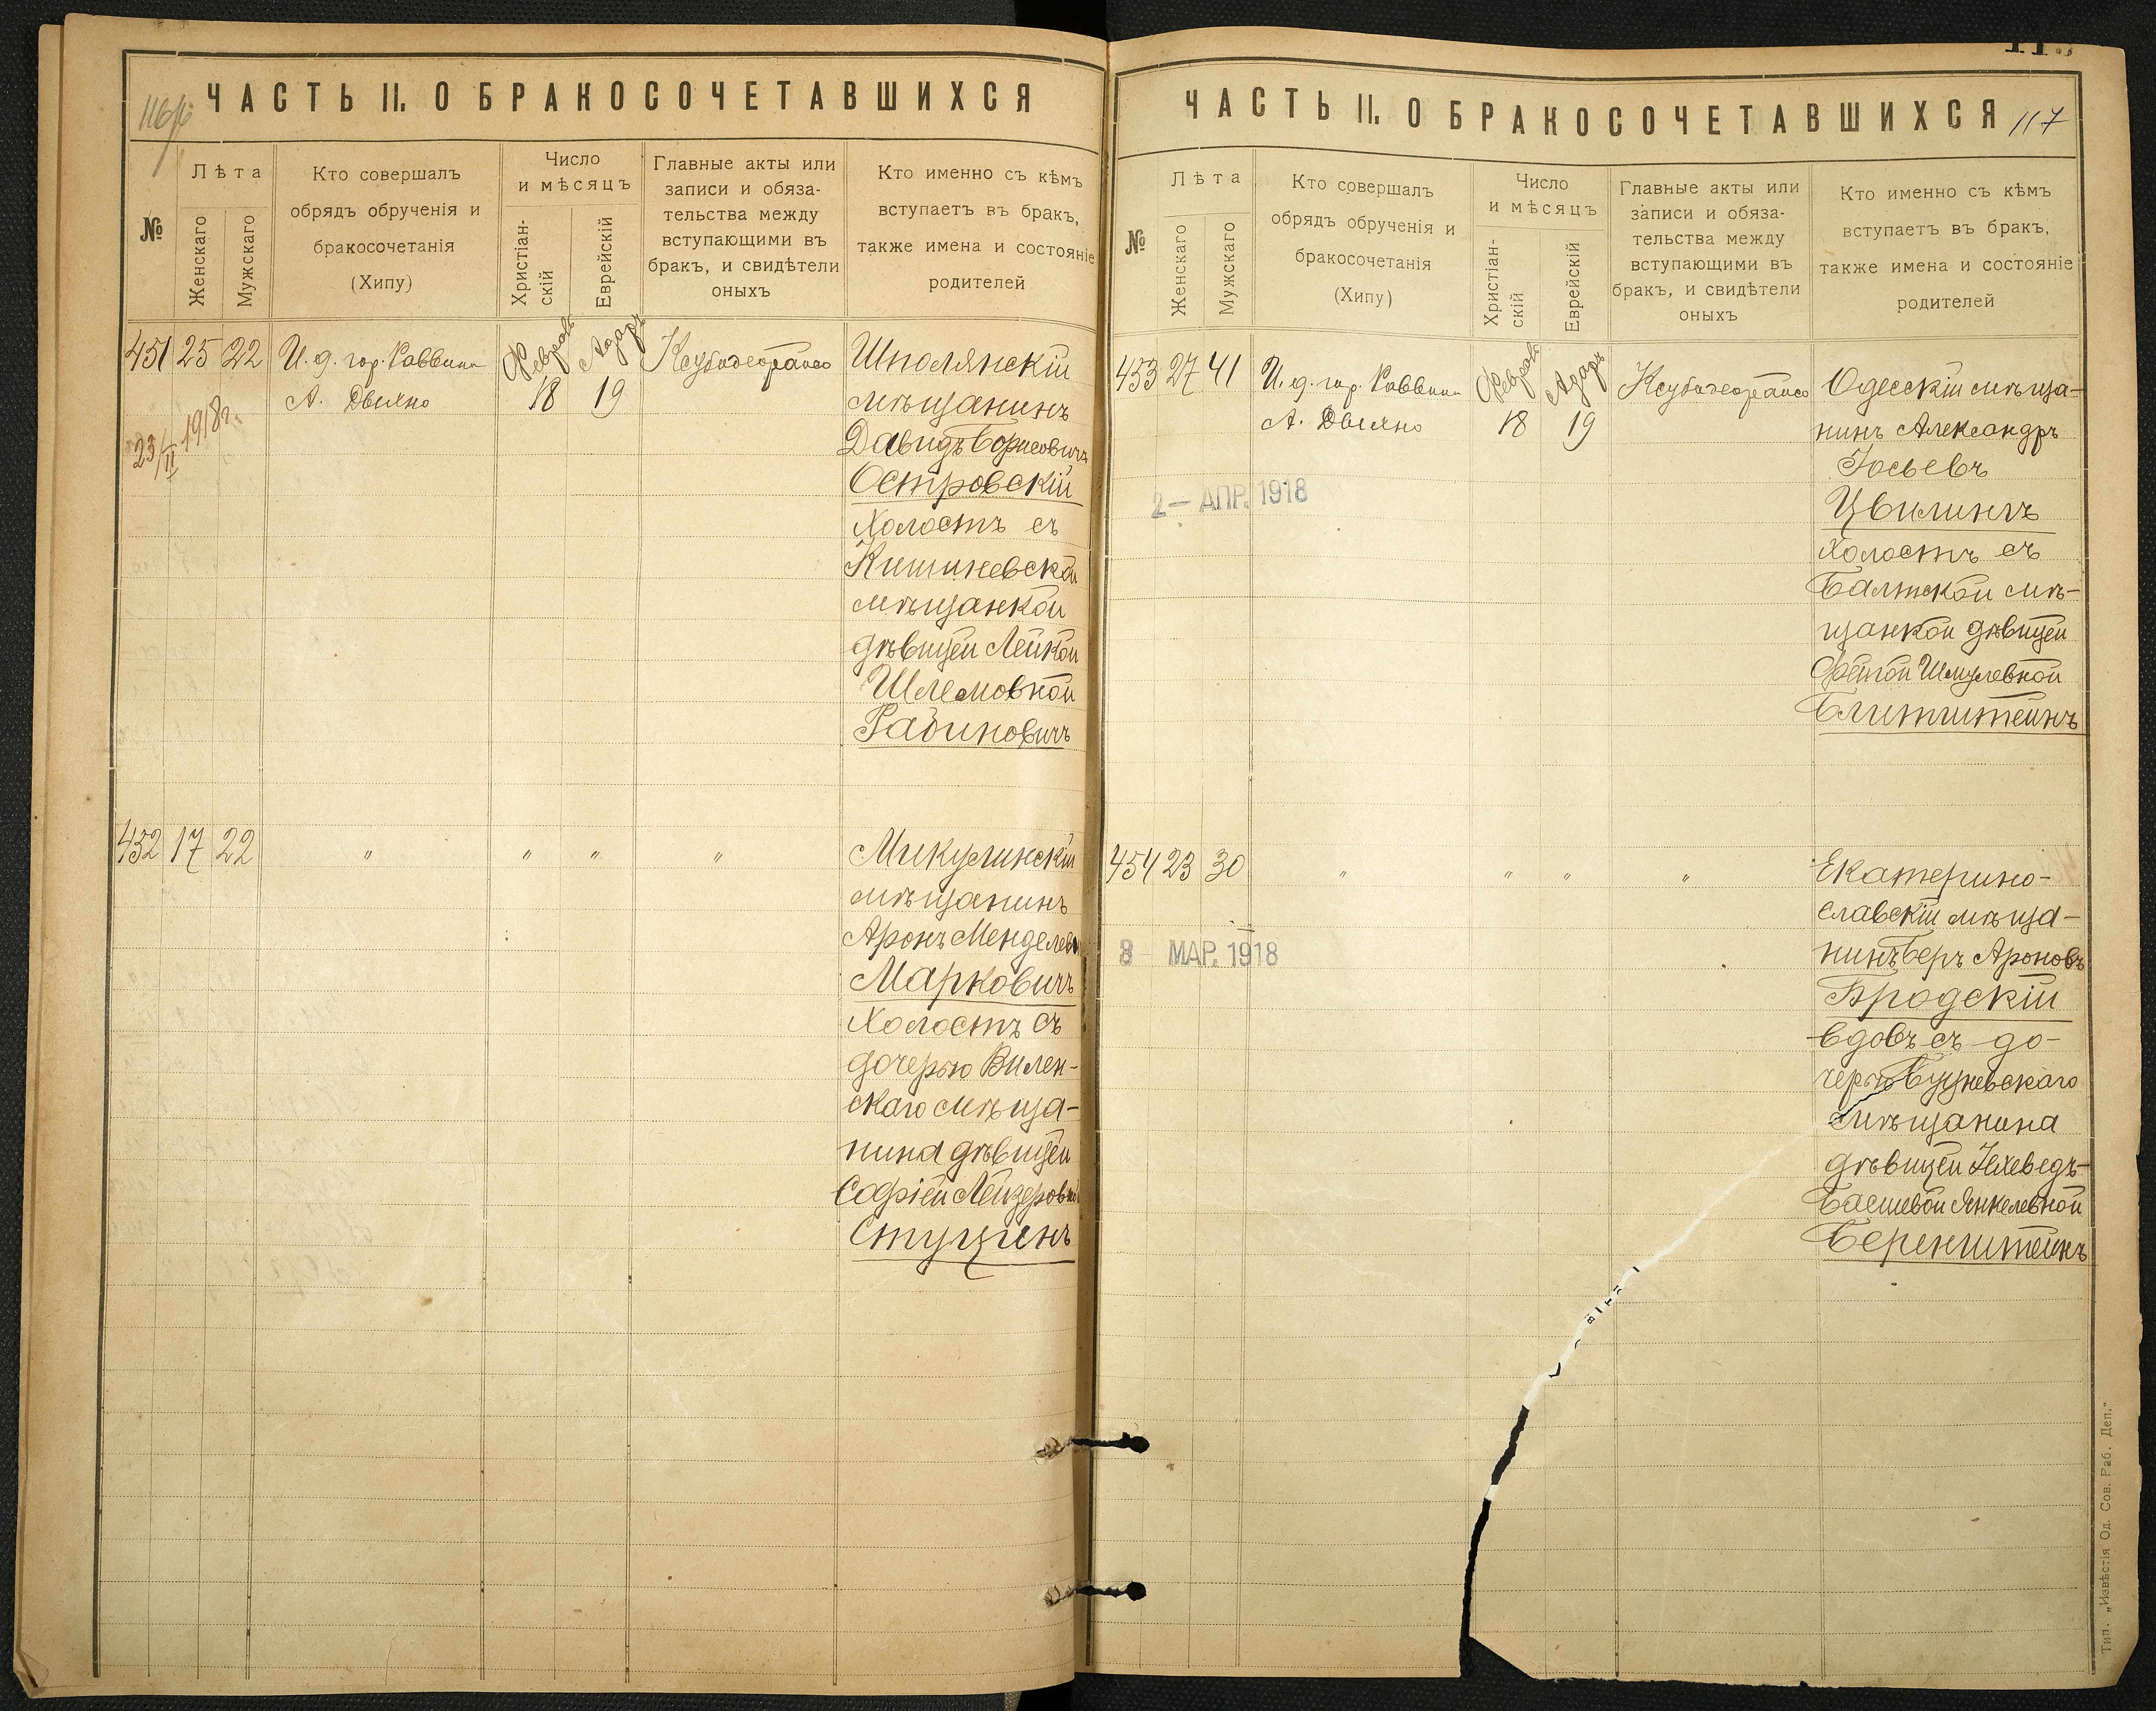 116/б
ЧАСТЬ II. О БРАКОСОЧЕТАВШИХСЯ
№
Лѣта
Женскаго
Мужскаго
Кто совершалъ
обрядъ обрученія и
бракосочетанія
(Хипу)
Число
и мѣсяцъ
Христіан-
скій
Еврейскій
Главные акты или
записи и обяза-
тельства между
вступающими въ
бракъ, и свидѣтели
оныхъ
Кто именно съ кѣмъ
вступаетъ въ бракъ,
также имена и состояніе
родителей
451 25 22 И. д. гор. Раввина
А.
Феврал Адаръ
18 19
23/II 1918г.
Шполянскій
мѣщанинъ
Давидъ Борисовичъ
Островскій
холостъ съ
Кишиневской
мѣщанкой
дѣвицей Лейкой
Шлемовной
Рабиновичъ
432 17 22 " " " "
Микулинскій
мѣщанинъ
Аронъ Менделев
Марковичъ
Холостъ съ
дочерью Вилен-
скаго мѣща-
нина дѣвицей
Софіей Лейзеровн
ЧАСТЬ II. О БРАКОСОЧЕТАВШИХСЯ
117
№
Лѣта
Женскаго
Мужскаго
Кто совершалъ
обрядъ обрученія и
бракосочетанія
(Хипу)
Число
и мѣсяцъ
Христіан-
скій
Еврейскій
Главные акты или
записи и обяза-
тельства между
вступающими въ
бракъ, и свидѣтели
оныхъ
Кто именно съ кѣмъ
вступаетъ въ бракъ,
также имена и состояніе
родителей
453 27 41 И. д. гор. Раввина
А.
Феврал Адаръ
18 19
2 — АПР. 1918
Одесскій мѣща-
нинъ Александръ
Іосьевъ
Цвилингъ
холостъ съ
Балтской мѣ-
щанкой дѣвицей
Фейгой Шмулевной
Блитштейнъ
454 23 30 " " " "
8 МАР. 1918
Екатерино-
славскій мѣща-
нинъ Беръ Ароновъ
Бродскій
вдовъ съ до-
черью
мѣщанина
дѣвицей Іохеведъ-
Басшевой Янкелевной
Беренштейнъ
Тип. „Извѣстія Од. Сов. Раб. Деп."